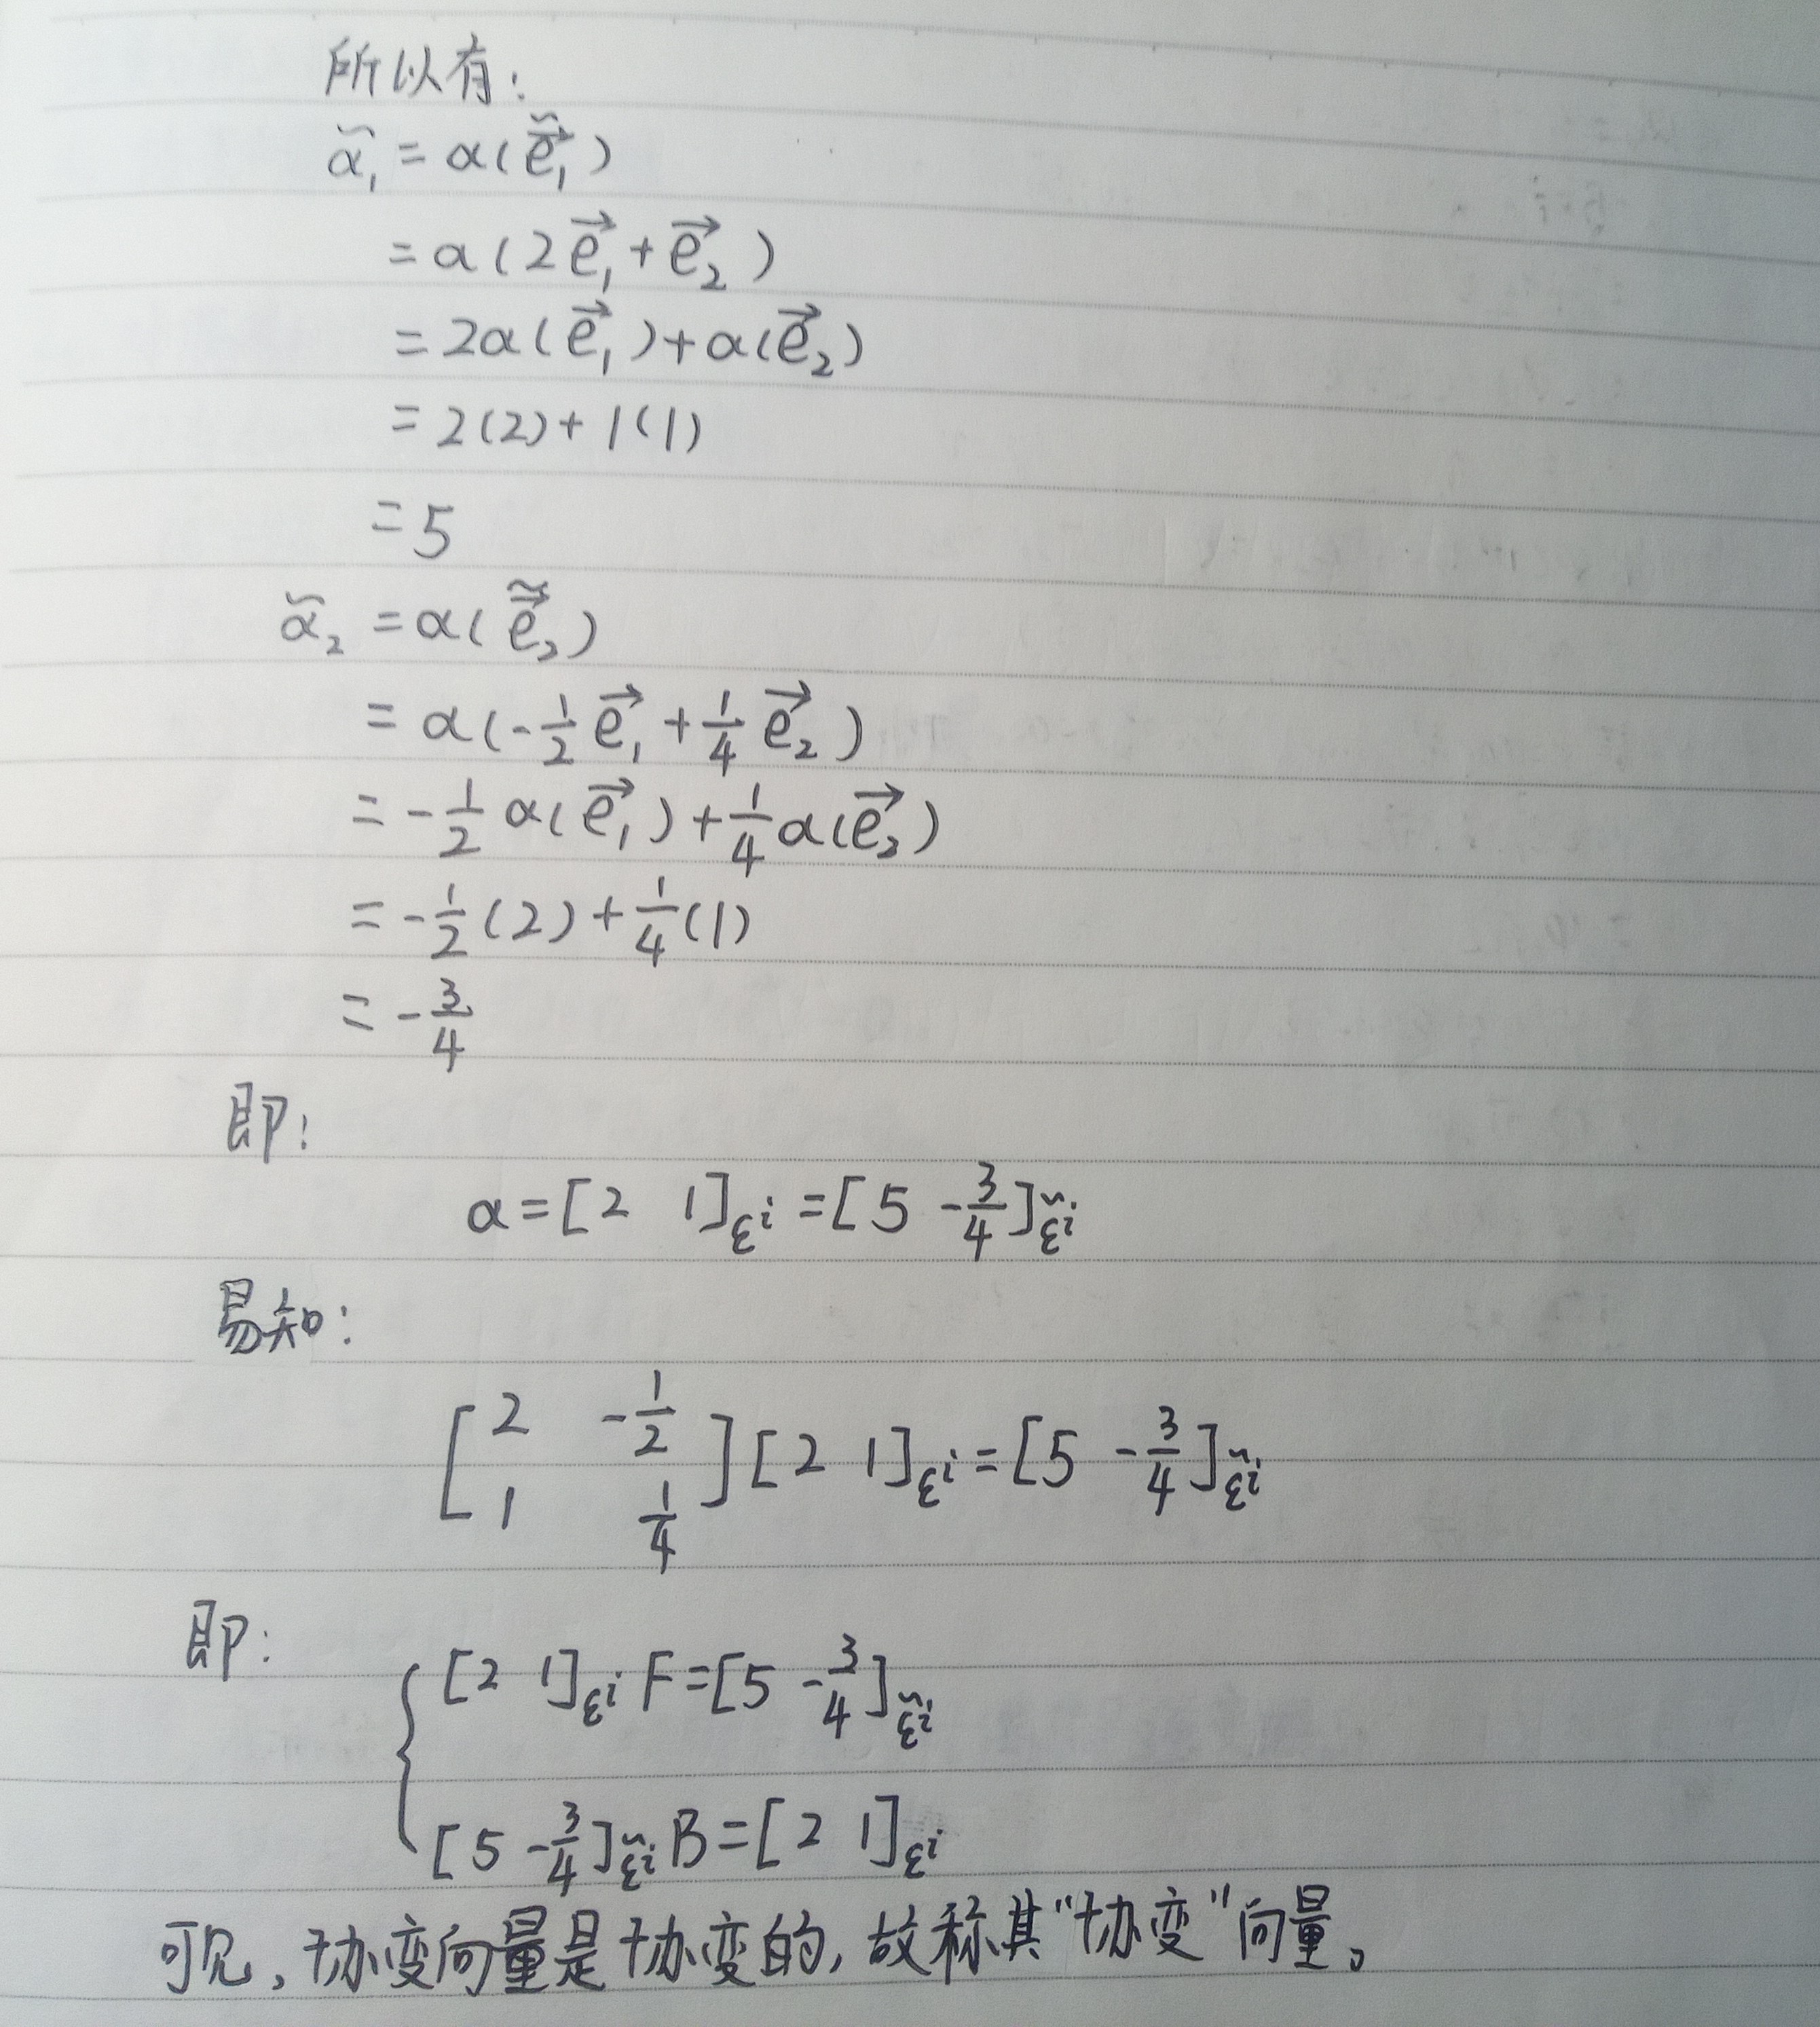 所以有:
α̃₁ = α(ẽ⃗₁)
= α(2e⃗₁ + e⃗₂)
= 2α(e⃗₁) + α(e⃗₂)
= 2(2) + 1(1)
= 5
α̃₂ = α(ẽ⃗₂)
= α(-1/2 e⃗₁ + 1/4 e⃗₂)
= -1/2 α(e⃗₁) + 1/4 α(e⃗₂)
= -1/2 (2) + 1/4 (1)
= -3/4
即:
α = [2 1]_εⁱ = [5 -3/4]_ε̃ⁱ
易知:
[2 -1/2; 1 1/4] [2 1]_εⁱ = [5 -3/4]_ε̃ⁱ
即:
{ [2 1]_εⁱ F = [5 -3/4]_ε̃ⁱ
[5 -3/4]_ε̃ⁱ B = [2 1]_εⁱ
可见,协变向量是协变的,故称其“协变”向量。